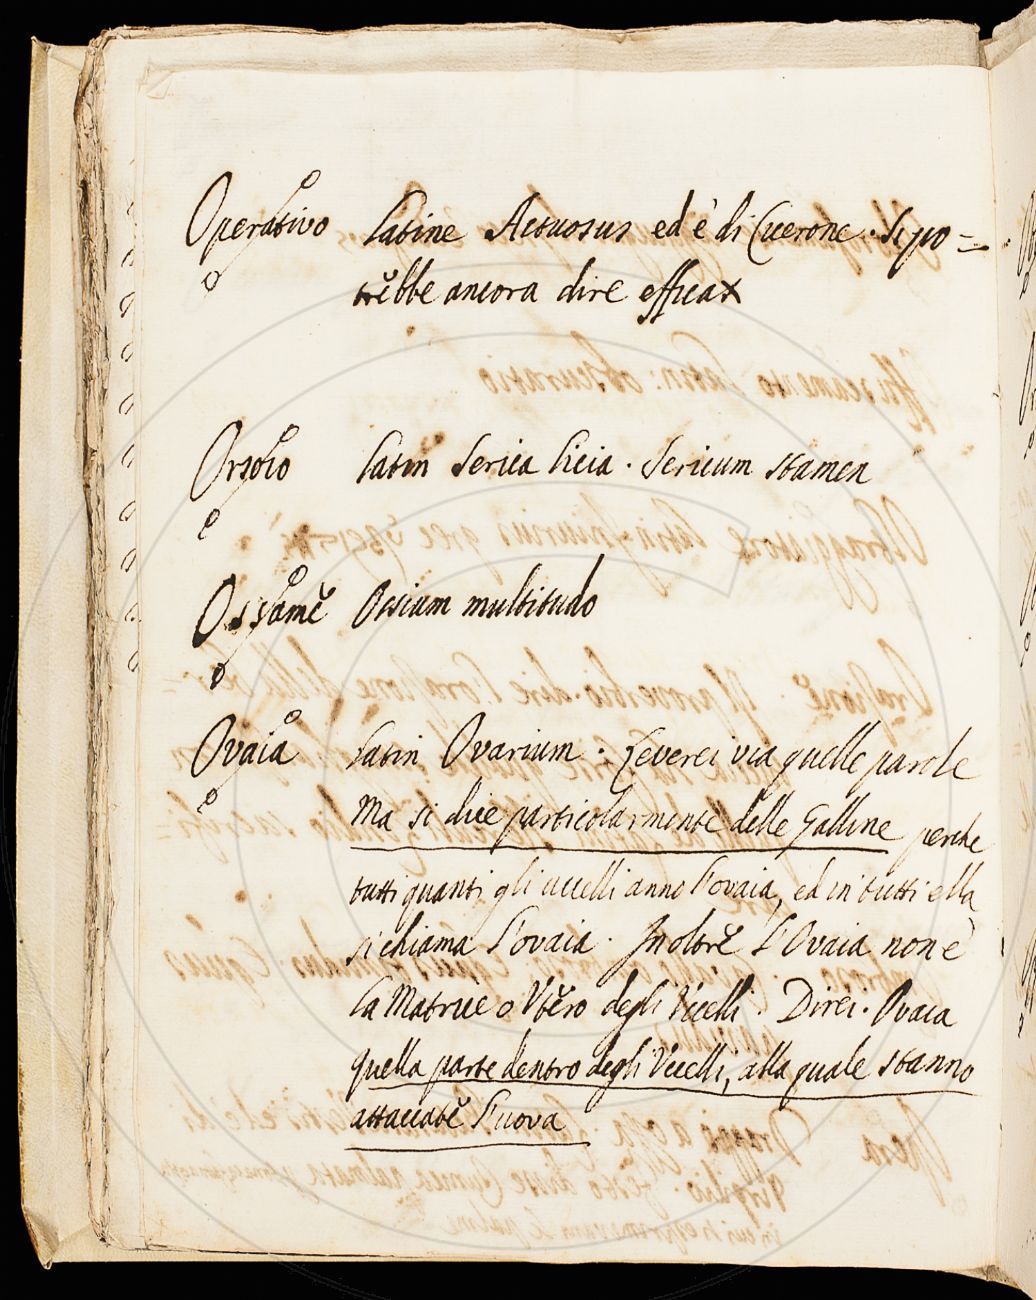 Operativo Latine Actuosus ed è di Cicerone. Si po=
trebbe ancora dire efficax
Orsoio Latin Serica licia. Sericum stamen
Ossame Ossium multitudo
Ovaia Latin Ovarium. Leverei via quelle parole
Ma si dice particolarmente delle Galline perche
tutti quanti gli uccelli anno l'ovaia, ed in tutti ella
si chiama l'ovaia. Inoltre l'Ovaia non è
la Matrice o Utero degli Uccelli. Direi. Ovaia
quella parte dentro degli Uccelli, alla quale stanno
attaccate l'uova